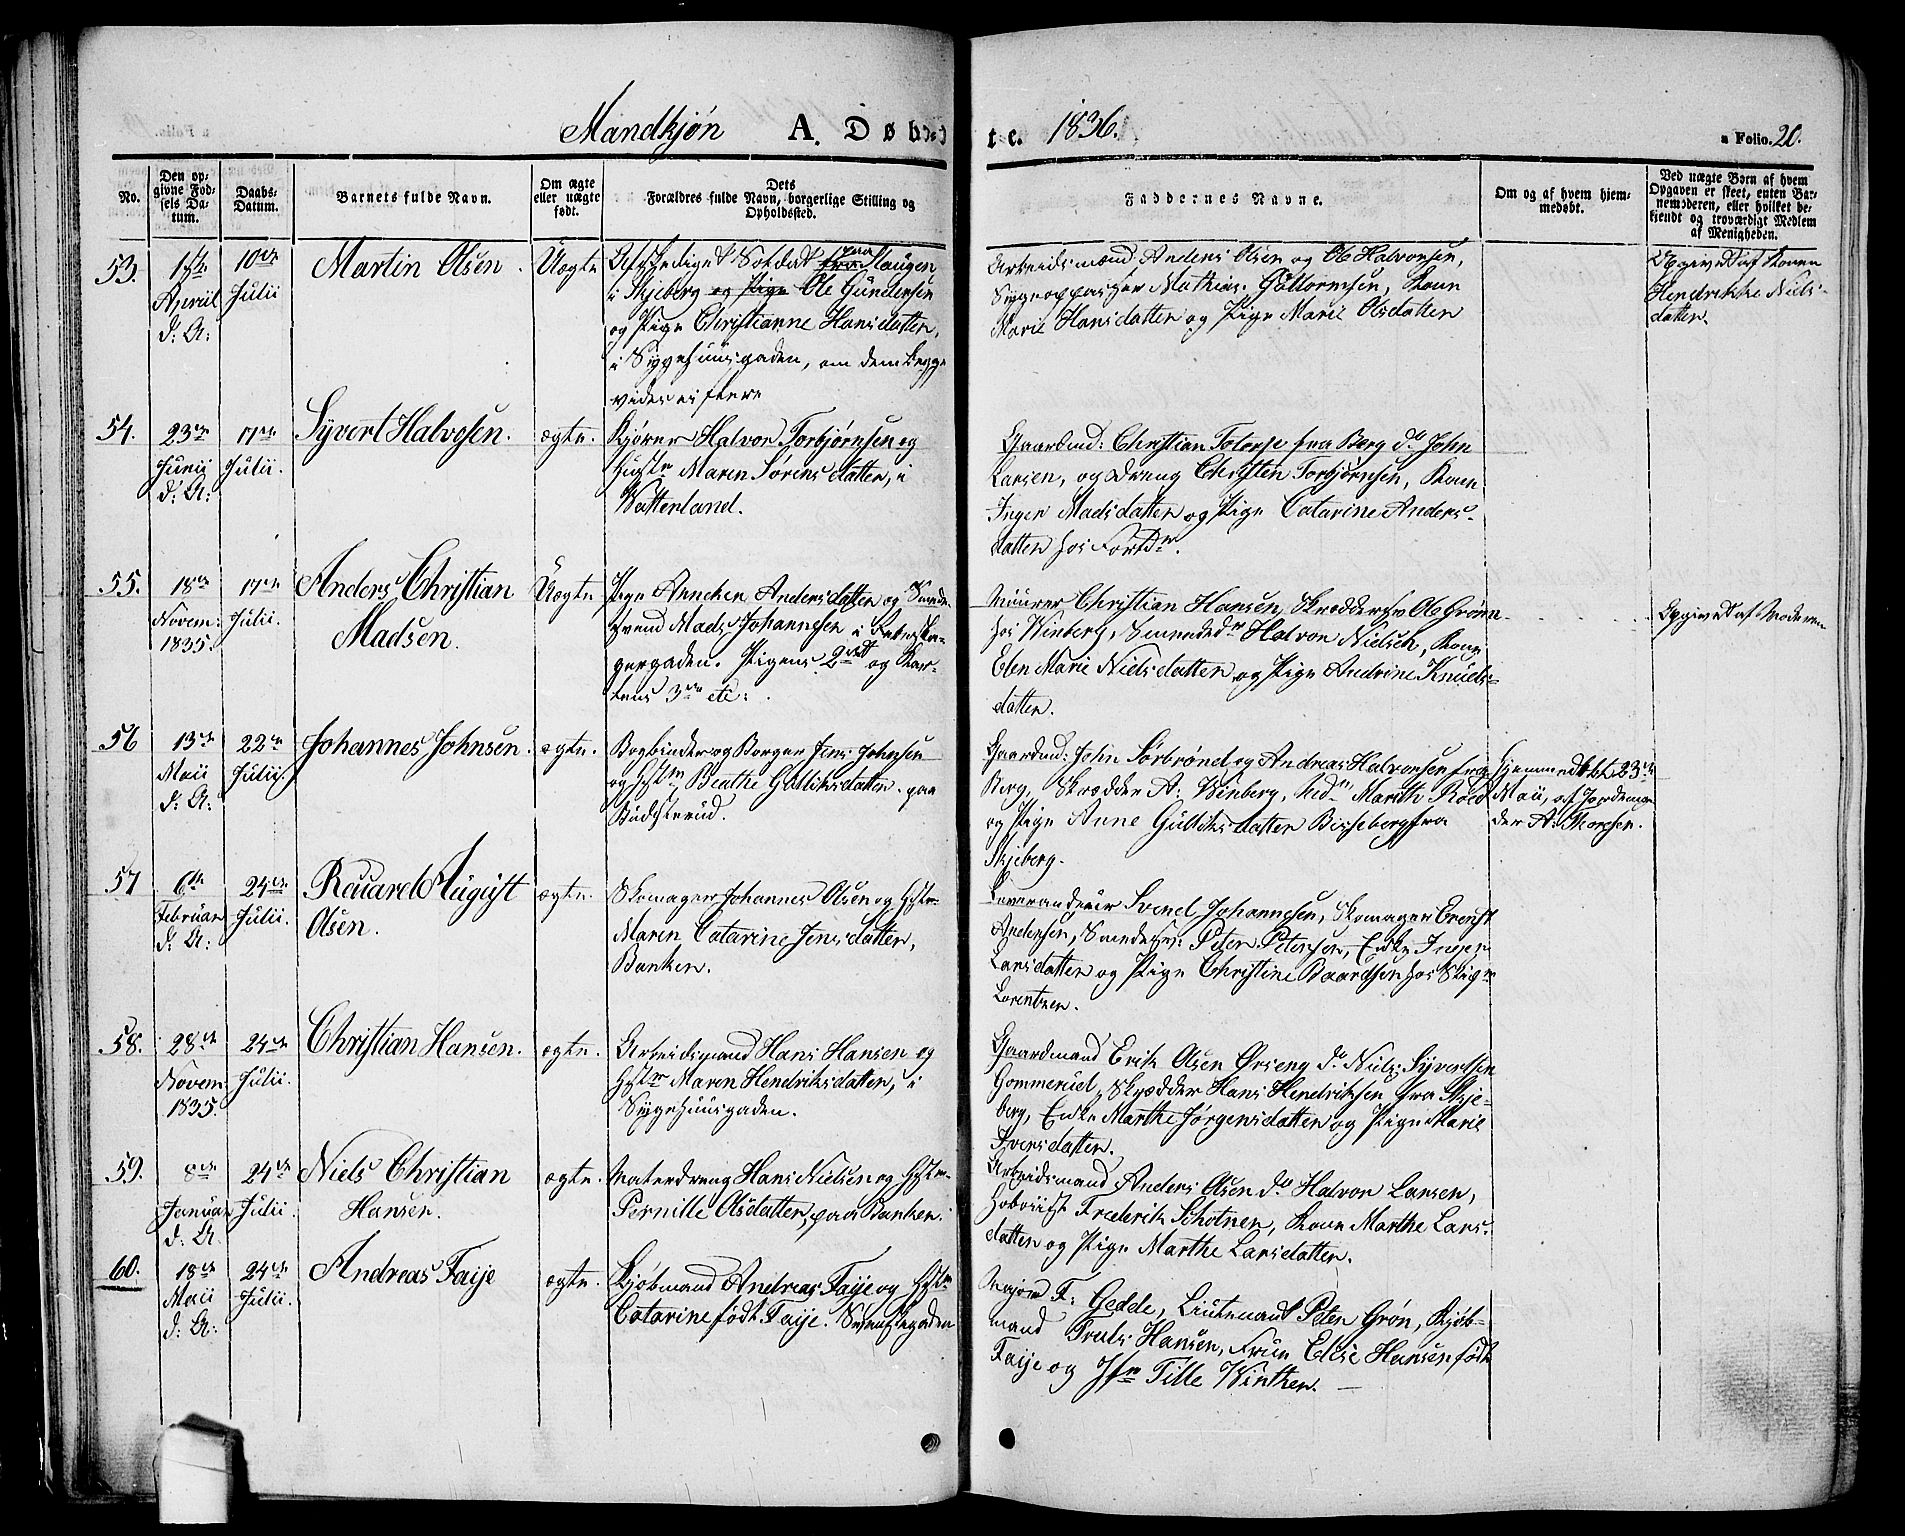 Mandkjøn A. Døbte. 1836. a Folio. 20.
No.
Den opgivne Fødsels Datum.
Daabs-Datum.
Barnets fulde Navn.
Om ægte eller uægte født.
Dets Forældres fulde Navn, borgerlige Stilling og Opholdssted.
Faddernes Navne.
Om og af hvem hjemmedøbt.
Ved uægte Børn af hvem Opgaven er skeet, enten Barnemoderen, eller hvilket bekjendt og troværdigt Medlem af Menigheden.
53.
April
d: A:
10de
Julii
Martin Olsen.
Uægte
Afskediget Soldat paa Haugen
i Skjeberg og Pige Ole Gundersen
og Pige Christianne Hansdatter,
i Sygehuusgaden, om dem begge
vides ei flere
Arbeidsmænd Anders Olsen og Ole Halvorsen,
Sygeopasser Mathias Guttormsen, Kone
Marie Hansdatter og Pige Marie Olsdatter
Opgivet af Konen
Hendrikke Niels-
datter.
54.
23de
Junii
d: A:
17de
Julii.
Syvert Halvosen.
ægte.
Kjører Halvor Torbjørnsen og
Hustr Maren Sørensdatter, i
Vatterland.
Gaardmd: Christian Tolorp fra Berg do John
Larsen, og Dreng Christen Torbjørnsen, Kone
Inger Madsdatter og Pige Catarine Anders-
datter hos
55.
18de
Novem:
1835.
17de
Julii.
Anders Christian
Madsen.
Uægte
Pige Anneken Andersdatter og Smede-
svend Mads Johannesen i
gergaden. Pigens 2det og Kar-
lens 3die etc:
Muurer Christian Hansen, Skræddersv Ole Grøen
hos Winberg, Smeded Halvor Nielsen, Kone
Elen Marie Nielsdatter og Pige Andrine Knuds-
datter.
Opgivet af Moderen
56
13de
Maii
d: A:
22de
Julii.
Johannes Johnsen.
ægte.
Bogbinder og Borger Jens Johnsen
og Hstr Beathe Gulliksdatter. paa
Budsterud.
Gaardmd: John Sørbrønd og Andreas Halvorsen fra
Berg, Skrædder A: Winberg, Mad Marith Roed
og Pige Anne Gulliksdatter Bisseberg fra
Skjeberg.
Hjemmedøbt 23de
Maii, af Jordemo-
der A: Morsen.
57
6te
Februar
d: A:
24de
Julii.
August
Olsen.
ægte.
Skomager Johannes Olsen og Hstr
Maren Catarine Jensdatter,
Banken.
Leverandeur Svend Johannesen, Skomager Erenst
Andersen, Smedesv: Peter Petersen, Enke Inger
Larsdatter og Pige Christine Baardsen hos
Lorentzen.
58.
28de
Novem:
1835.
24de
Julii.
Christian Hansen.
ægte.
Arbeidsmand Hans Hansen og
Hstr Maren Hendriksdatter, i
Sygehuusgaden.
Gaardmand Erik Olsen Ørseng do Niels Syvertsen
Gommerud, Skrædder Hans Hendriksen fra Skje-
berg, Enke Marthe Jørgensdatter og Pige Marie
Iversdatter.
59.
8de
Januar
d: A:
24de
Julii.
Niels Christian
Hansen.
ægte.
Hans Nielsen og Hstr
Pernille Olsdatter, paa Banken.
Arbeidsmand Anders Olsen do Halvor Larsen,
Frederik Kone Marthe Lars-
datter og Pige Marthe Larsdatter.
60.
18de
Maii
d: A:
24de
Julii.
Andreas Faije
ægte.
Kjøbmand Andreas Faije og Hstr
Catarine født Faije.
Major F: Gedde, Lieutenant Peter Grøn, Kjøb-
mand Truls Hansen, Frue Elise Hansen født
Faije og Jfr Tille Winther.